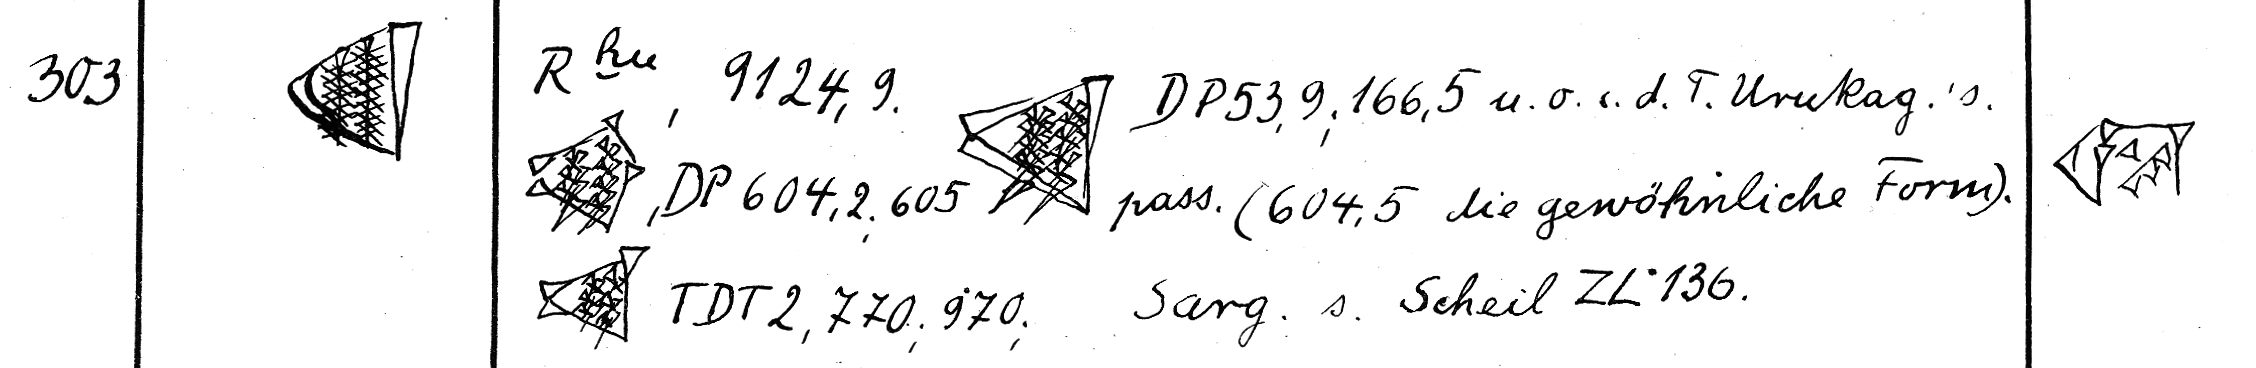 303
R ḫu, 9124, 9. DP 53, 9; 166, 5 u. o. i. d. T. Urukag.'s.
, DP 604, 2; 605 pass. (604, 5 die gewöhnliche Form).
TDT 2, 770; 970; Sarg. s. Scheil ZL 136.